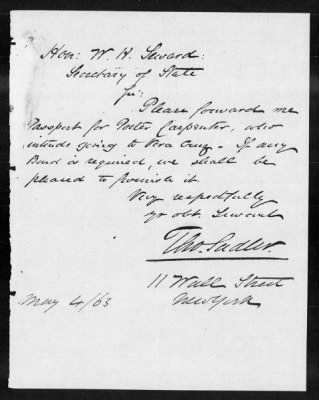 Hon: W. H. Seward:
Secretary of State
Sir;
Please forward me
Passport for Porter Carpenter, who
intends going to Vera Cruz - If any
Bond is required, we shall be
pleased to furnish it.
Very respectfully
yr obt Servant
Tho. Sadler.
11 Wall Street
New York
May 4/63